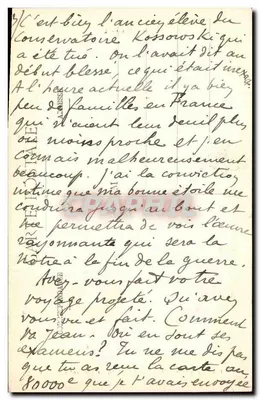 C'est bien l'ancien élève du
Conservatoire Kossowski qui
a été tué. On l'avait dit au
début blessé, ce qui était inexact.
A l'heure actuelle il y a bien
peu de familles en France
qui n'aient leur deuil plus
ou moins proche et j'en
connais malheureusement
beaucoup. J'ai la conviction
intime que ma bonne étoile me
conduira jusqu'au bout et
me permettra de voir l'œuvre
rayonnante qui sera la
nôtre à la fin de la guerre.
Avez-vous fait votre
voyage projeté. Qu'avez
vous vu et fait. Comment
va Jean. Où en sont ses
examens? Tu ne me dis pas
que tu as reçu la carte au
80000e que je t'avais envoyée
CARTE POSTALE